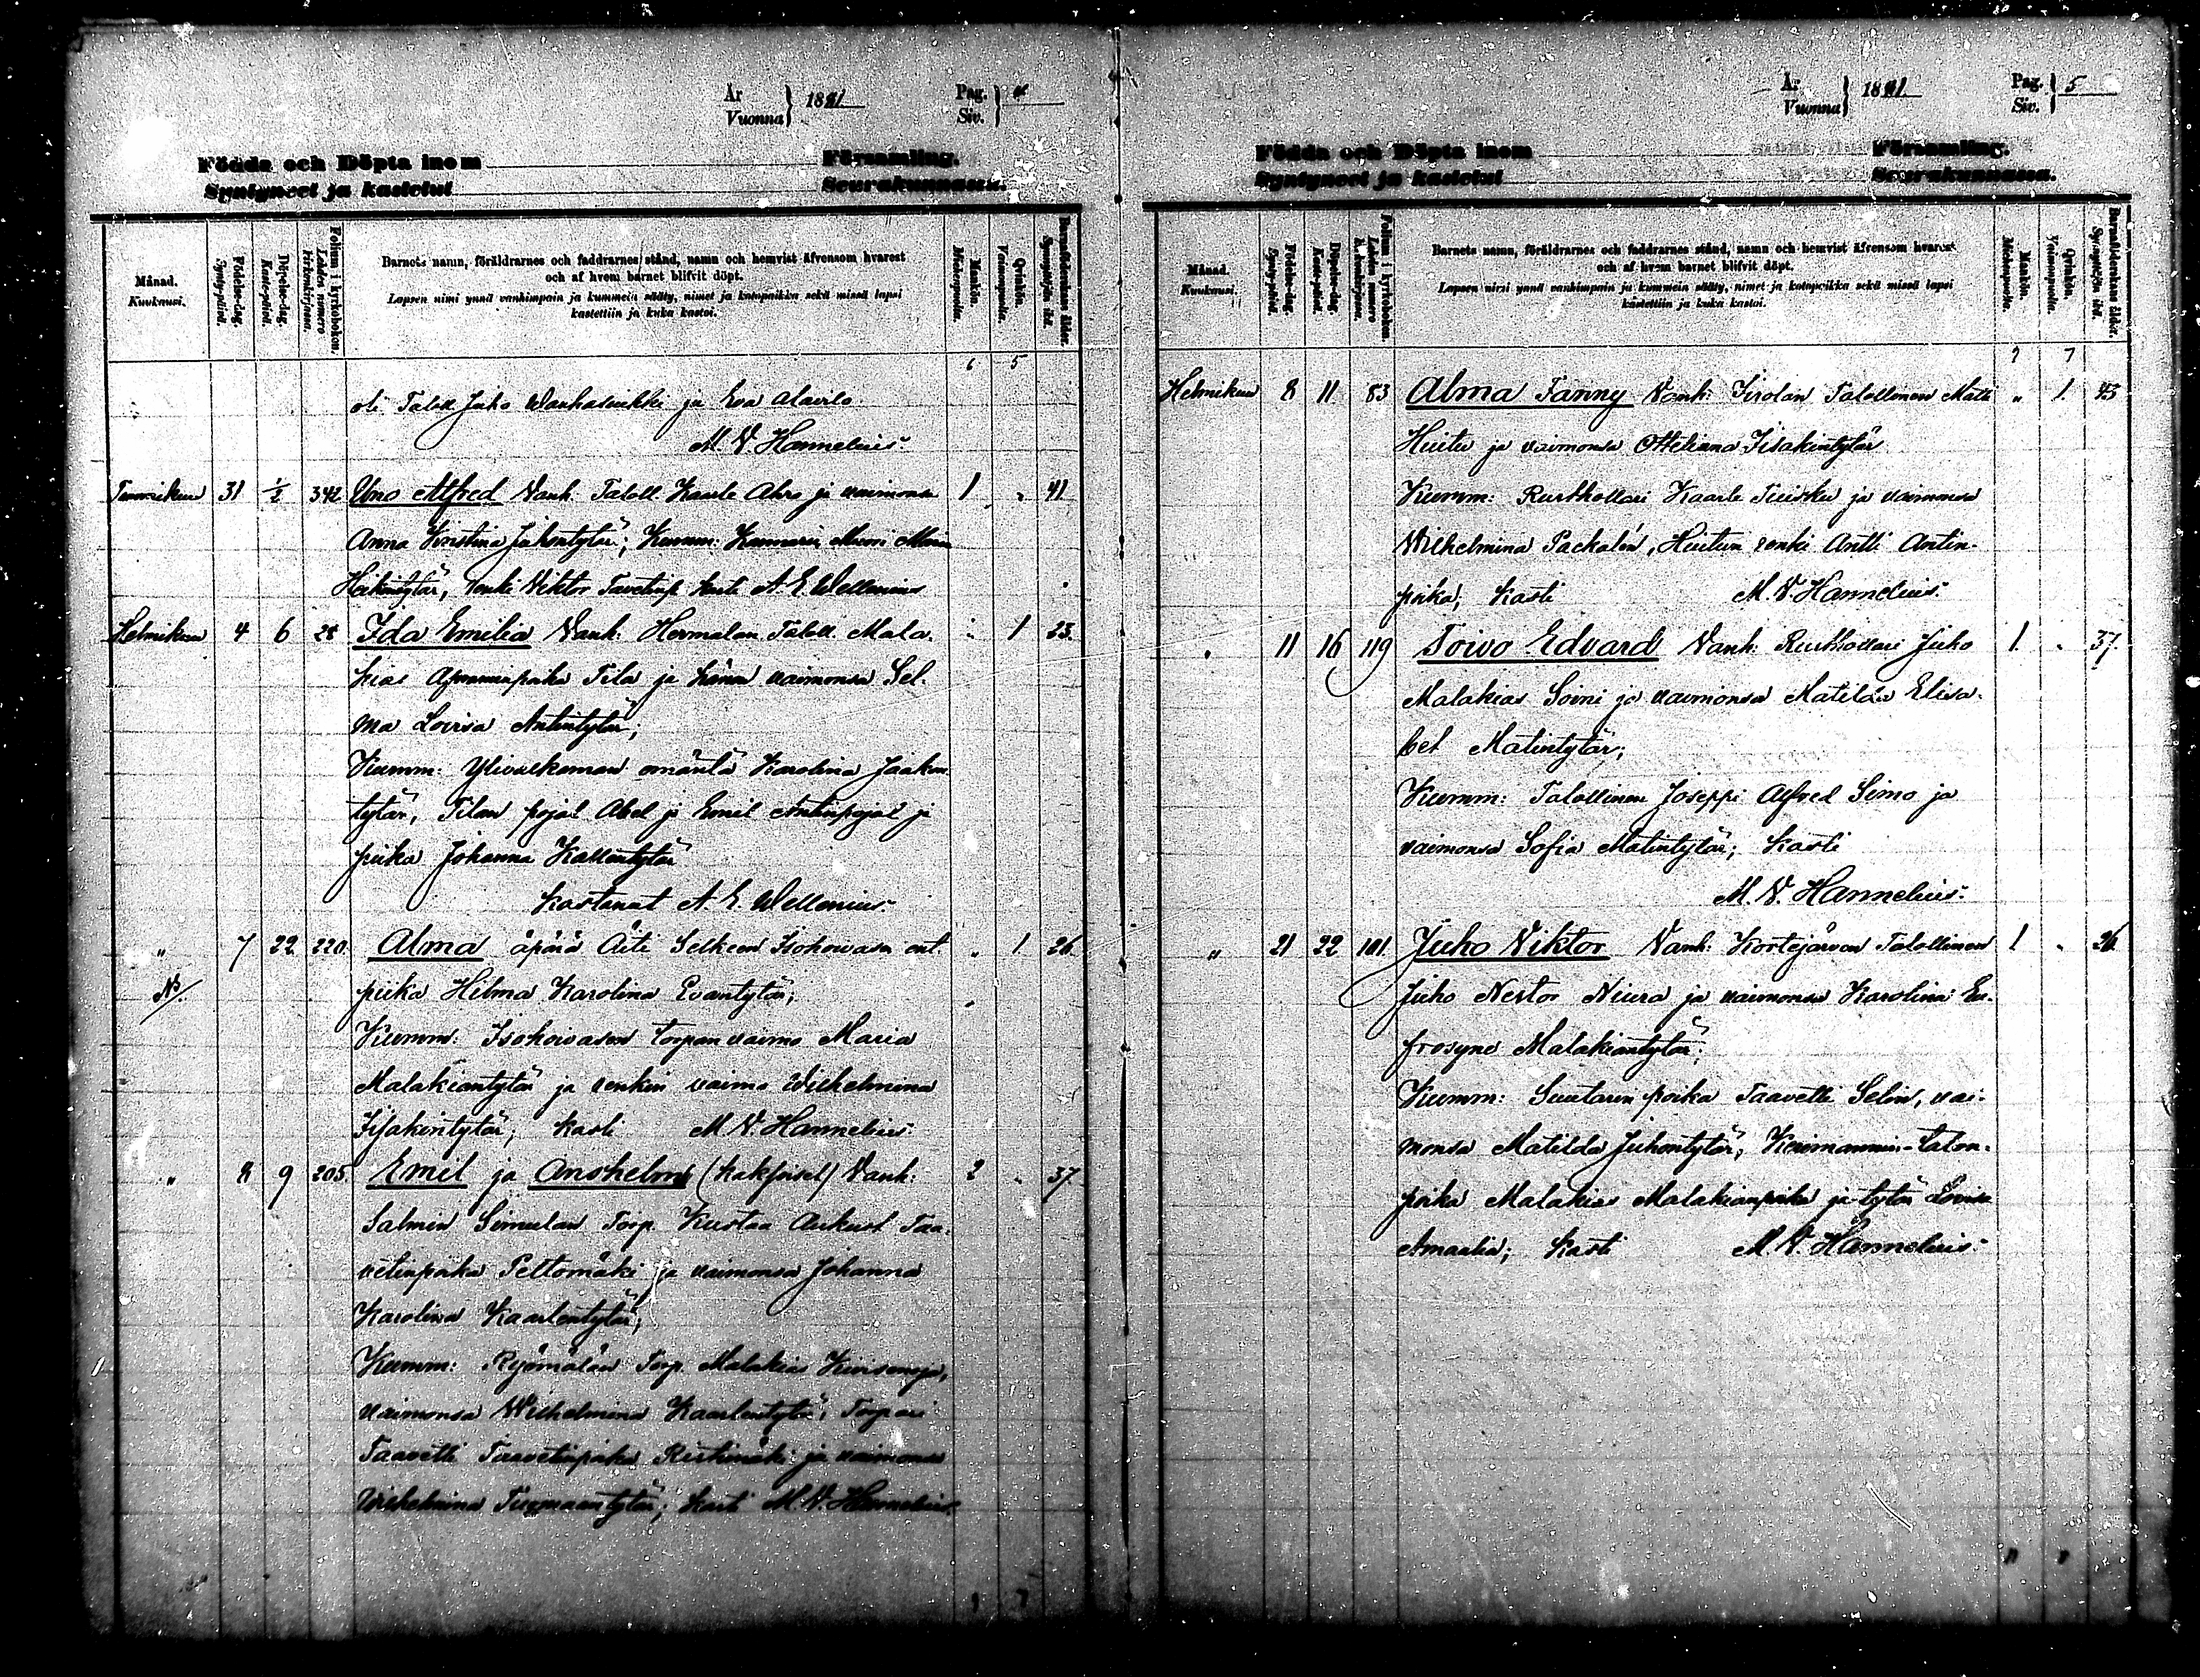 År
Vuonna } 1881
Pag.
Siv. }
Födda och Döpta inom Församling.
Syntyneet ja kastetut Seurakunnassa.
Månad.
Kuukausi.
Födelse-dag.
Syntypäivä.
Döpelse-dag.
Kaste-päivä.
Folium i kyrkoboken.
Lehden numero
Kirkonkirjassa.
Barnets namn, föräldrarnes och faddrarnes stånd, namn och hemvist äfvensom hvarest
och af hvem barnet blifvit döpt.
Lapsen nimi ynnä vanhimpain ja kummein sääty, nimet ja kotopaikka sekä missä lapsi
kastettiin ja kuka kastoi.
Mankön.
Miehenpuolia.
Qvinkön.
Vaimonpuolia.
Barnaföderskans ålder.
Synnyttäjän ikä.
6 5
oli Taloll Juho ja Eva Alavilo
M. V. Hannelius.
Tammikuu 31 1/2 342 Uno Alfred Vanh: Taloll Kaarle Ahro ja vaimonsa 1 „ 41
Anna Kristina Juhontytär; Kumm:
Heikintytär, renki Viktor kasti A. E. Wellenius
Helmikuu 4 6 28 Ida Emilia Vanh: Hermalan Taloll Mala- „ 1 23.
kias Tila ja hänen vaimonsa Sel-
ma Lovisa Antintytär;
Kumm: Ylivalkaman emäntä Karolina Jaakon
tytär, Tilan pojat Abel ja Emil Antinpojat ja
piika Johanna Kallentytär
Kastanut A. E. Wellenius.
„ 7 22 220. Alma äpärä Äiti Selkeen Isokoivasen ent. „ 1 26.
piika Hilma Karolina Evantytär;
Kumm: Isokoivasen torpan vaimo Maria
Malakiantytär ja renkin vaimo Wilhelmina
Iisakintytär; kasti M. V. Hannelius.
„ 8 9 205. Emil ja Anshelm (kaksoiset) Vanh: 2 „ 37.
Salmin Simulan Torp. Kustaa Aukust Taa-
vetinpoika Peltomäki ja vaimonsa Johanna
Karolina Kaarlentytär;
Kumm: Ryömälän Torp. Malakias
vaimonsa Wilhelmina Kaarlentytär, Torpari
Taavetti Taavetinpoika Ristimäki ja vaimonsa
Wilhelmina Tuomaantytär; kasti M. V. Hannelius.
År
Vuonna } 1881
Pag.
Siv. } 5
Födda och Döpta inom Församling.
Syntyneet ja kastetut Seurakunnassa.
Månad.
Kuukausi.
Födelse-dag.
Syntypäivä.
Döpelse-dag.
Kaste-päivä.
Folium i kyrkoboken.
Lehden numero
Kirkonkirjassa.
Barnets namn, föräldrarnes och faddrarnes stånd, namn och hemvist äfvensom hvarest
och af hvem barnet blifvit döpt.
Lapsen nimi ynnä vanhimpain ja kummein sääty, nimet ja kotopaikka sekä missä lapsi
kastettiin ja kuka kastoi.
Mankön.
Miehenpuolia.
Qvinkön.
Vaimonpuolia.
Barnaföderskans ålder.
Synnyttäjän ikä.
9 7
Helmikuu 8 11 83 Alma Fanny Vanh: Talollinen Matti „ 1. 43
Huitu ja vaimonsa Otteliana Iisakintytär
Kumm: Rusthollari Kaarle Tuisku ja vaimonsa
Wilhelmina Packalén, Huitun renki Antti Antin-
poika; kasti M. V. Hannelius.
„ 11 16 119 Toivo Edvard Vanh: Rusthollari Juho 1. „ 37.
Malakias Soini ja vaimonsa Matilda Elisa-
bet Matintytär;
Kumm: Talollinen Joseppi Alfred Simo ja
vaimonsa Sofia Matintytär; kasti
M. V. Hannelius.
„ 21 22 101. Juho Viktor Vanh: Kortejärven Talollinen 1 „ 26.
Juho Nestor Niura ja vaimonsa Karolina Eu-
frosyne Malakiantytär;
Kumm: Suutarin poika Taavetti Selin, vai-
monsa Matilda Juhontytär, talon-
poika Malakias Malakianpoika ja tytär Lovisa
Amaalia; kasti M. V. Hannelius.